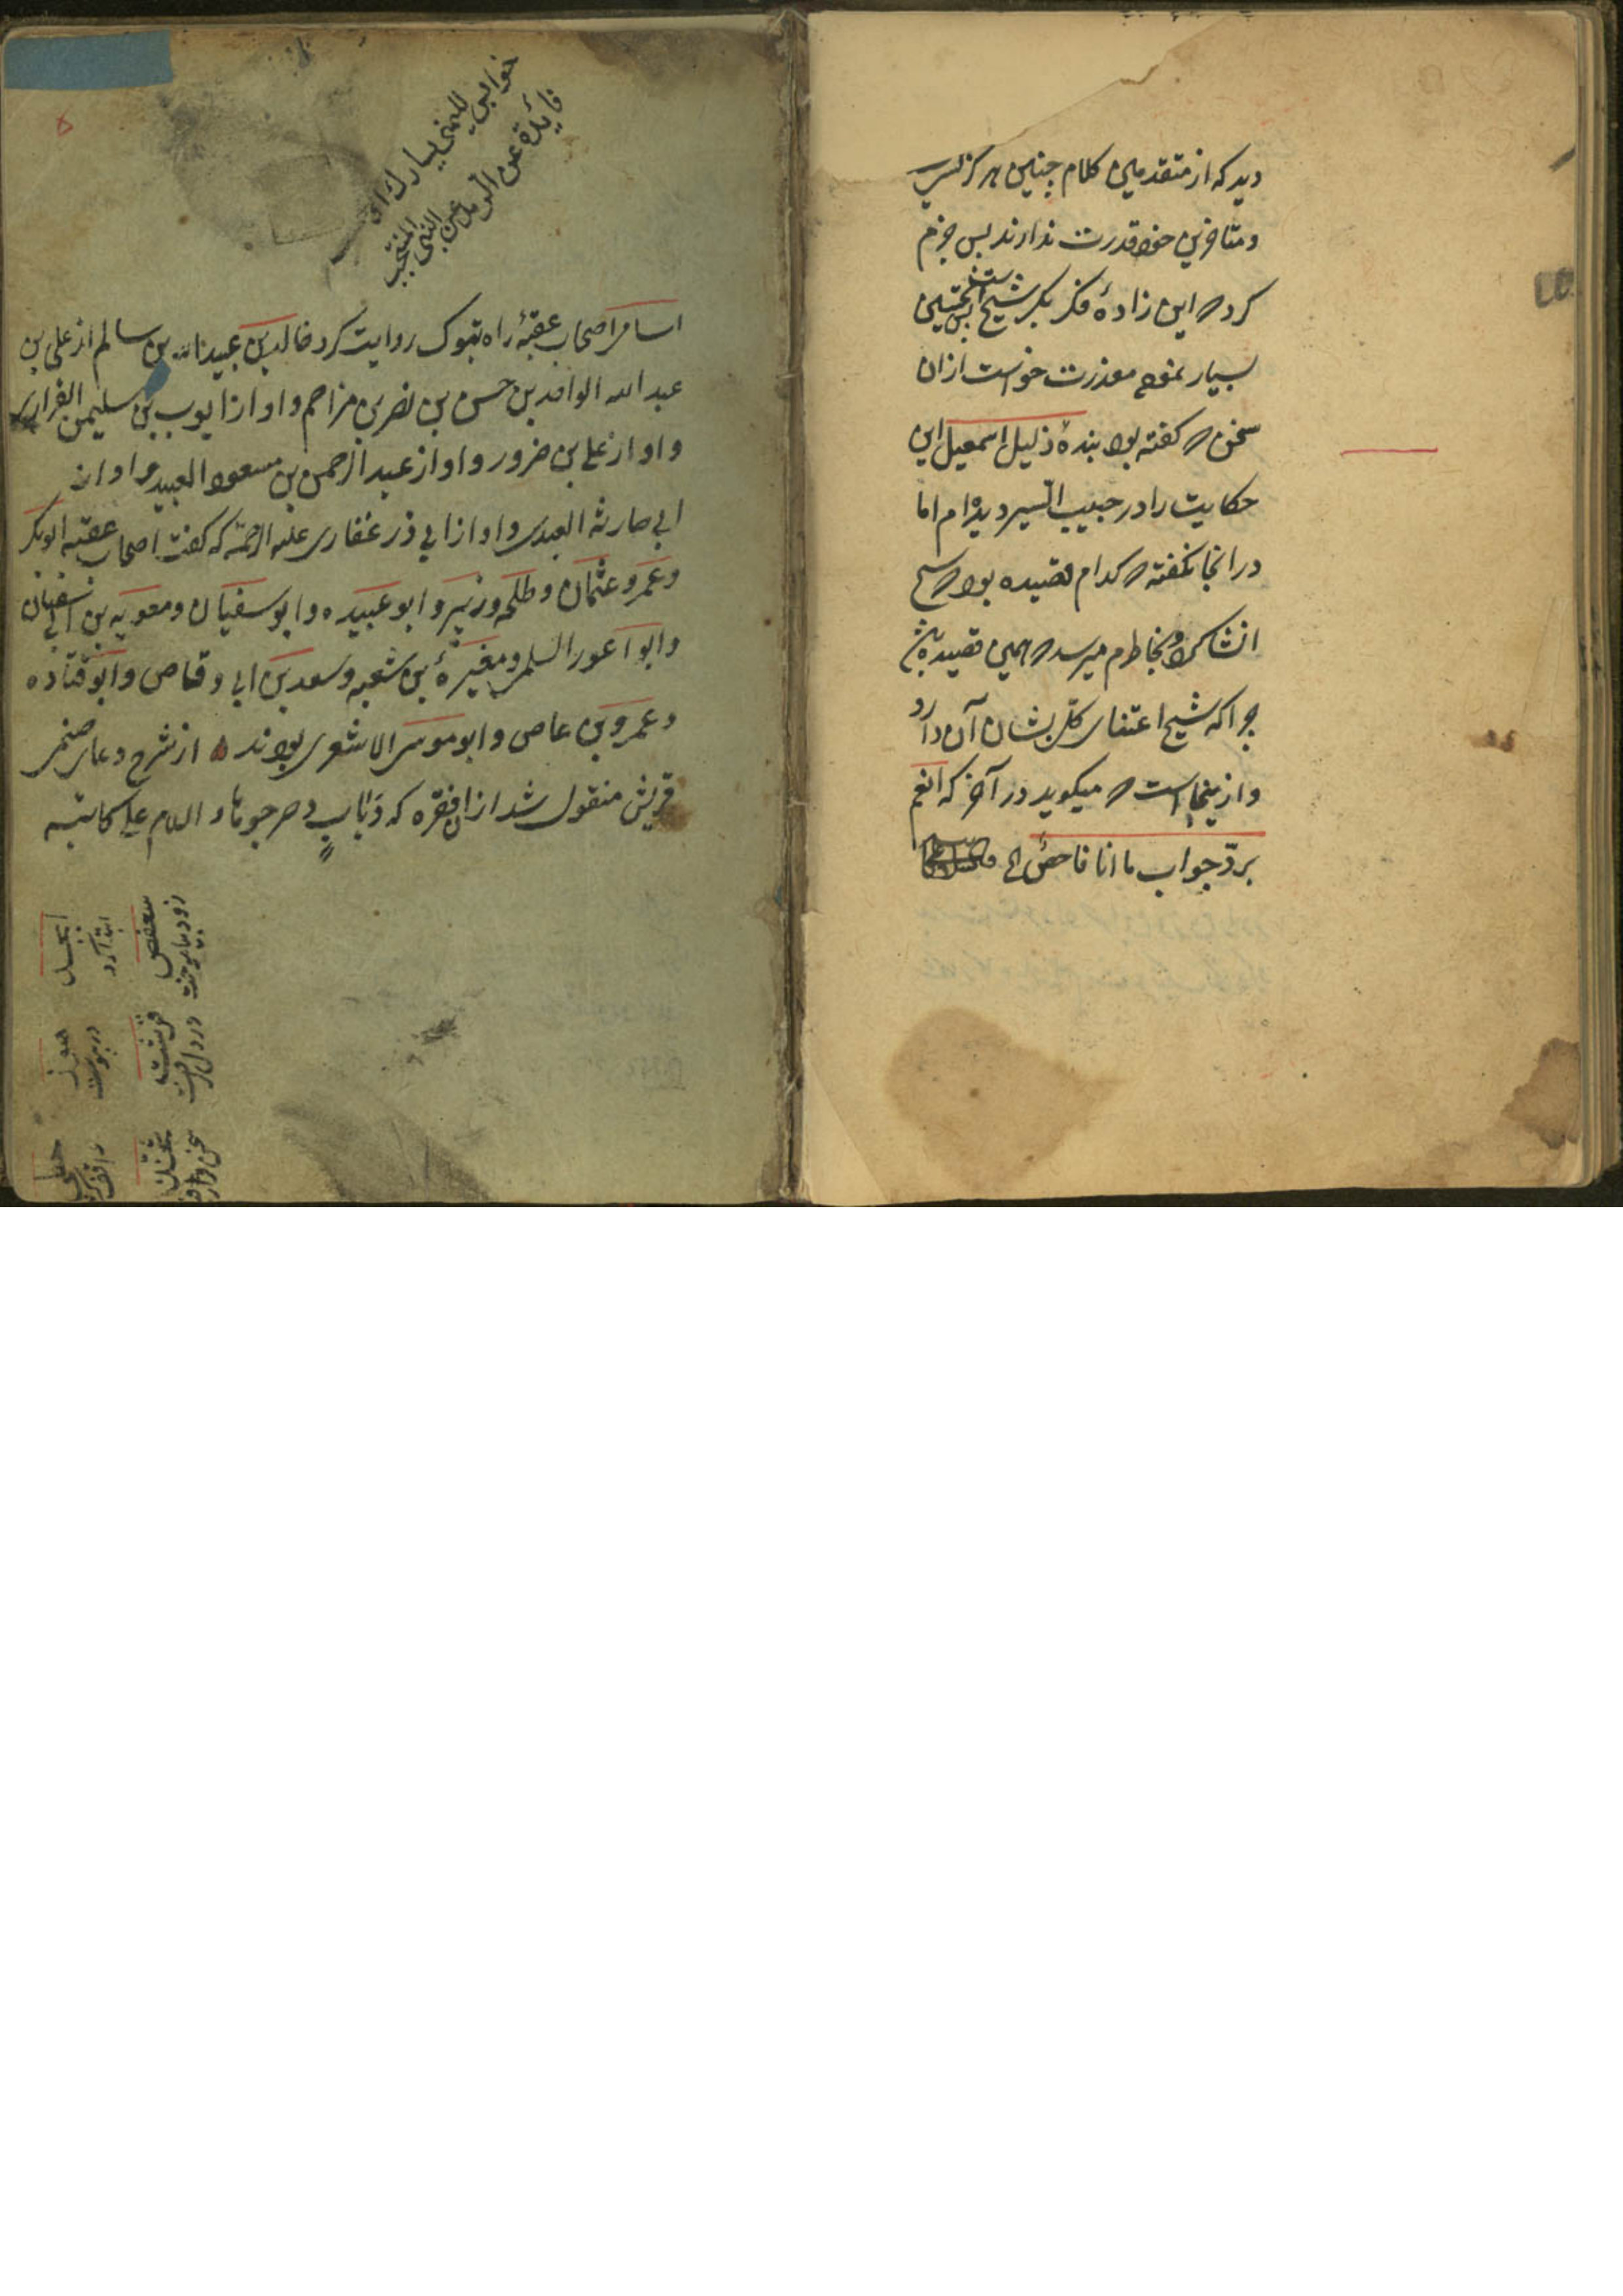 دید که از متقدمین کلام چنین هرگز
و متاخرین خود قدرت ندارند پس جزم
کرد که این زادهٔ فکر بکر شیخ است پس تحسین
بسیار نموده معذرت خواست ازان
سخن که گفته بود بندهٔ ذلیل اسمعیل این
حکایت را در حبیب السیر دیده‌ام اما
در انجا نگفته که کدام قصیده بود که شیخ
انشا کرد و بخاطرم میرسد که همین قصیده باشد
چرا که شیخ اعتنای کلی بشان آن دارد
و از ینجا است که میکوید در آخر که انعم
بردّ جواب ما انا فاحص الخ
فایدة عن النبی المنتجب
اسامی اصحاب عقبهٔ راه تبوک روایت کرد خالد بن عبید الله بن سالم از علی بن
عبد الله الواقد بن حسن بن نصر بن مزاحم و او از ایوب بن سلیمن الفزاری
و او از علی بن ضرور و او از عبد الرحمن بن مسعود العبیدی و او از
ابی حارثه العبدی و او از ابی ذر غفاری علیه الرحمة که گفت اصحاب عقبه ابوبکر
و عمر و عثمان و طلحه و زبیر و ابو عبیده و ابو سفیان و معویه بن ابی سفیان
و ابو اعور السلمی و مغیرهٔ بن شعبه و سعد بن ابی وقاص و ابو قتاده
و عمرو بن عاص و ابو موسی الاشعری بودند ه از شرح دعای صنمی
قریش منقول شد ازان فقره که و دباب دحرجوها و السلام علی کاتبه
ابجد
ابتدا کرد
هوز
در پیوست
حطی
واقف
سعفص
زود بیاموخت
قرشت
در دل گرفت